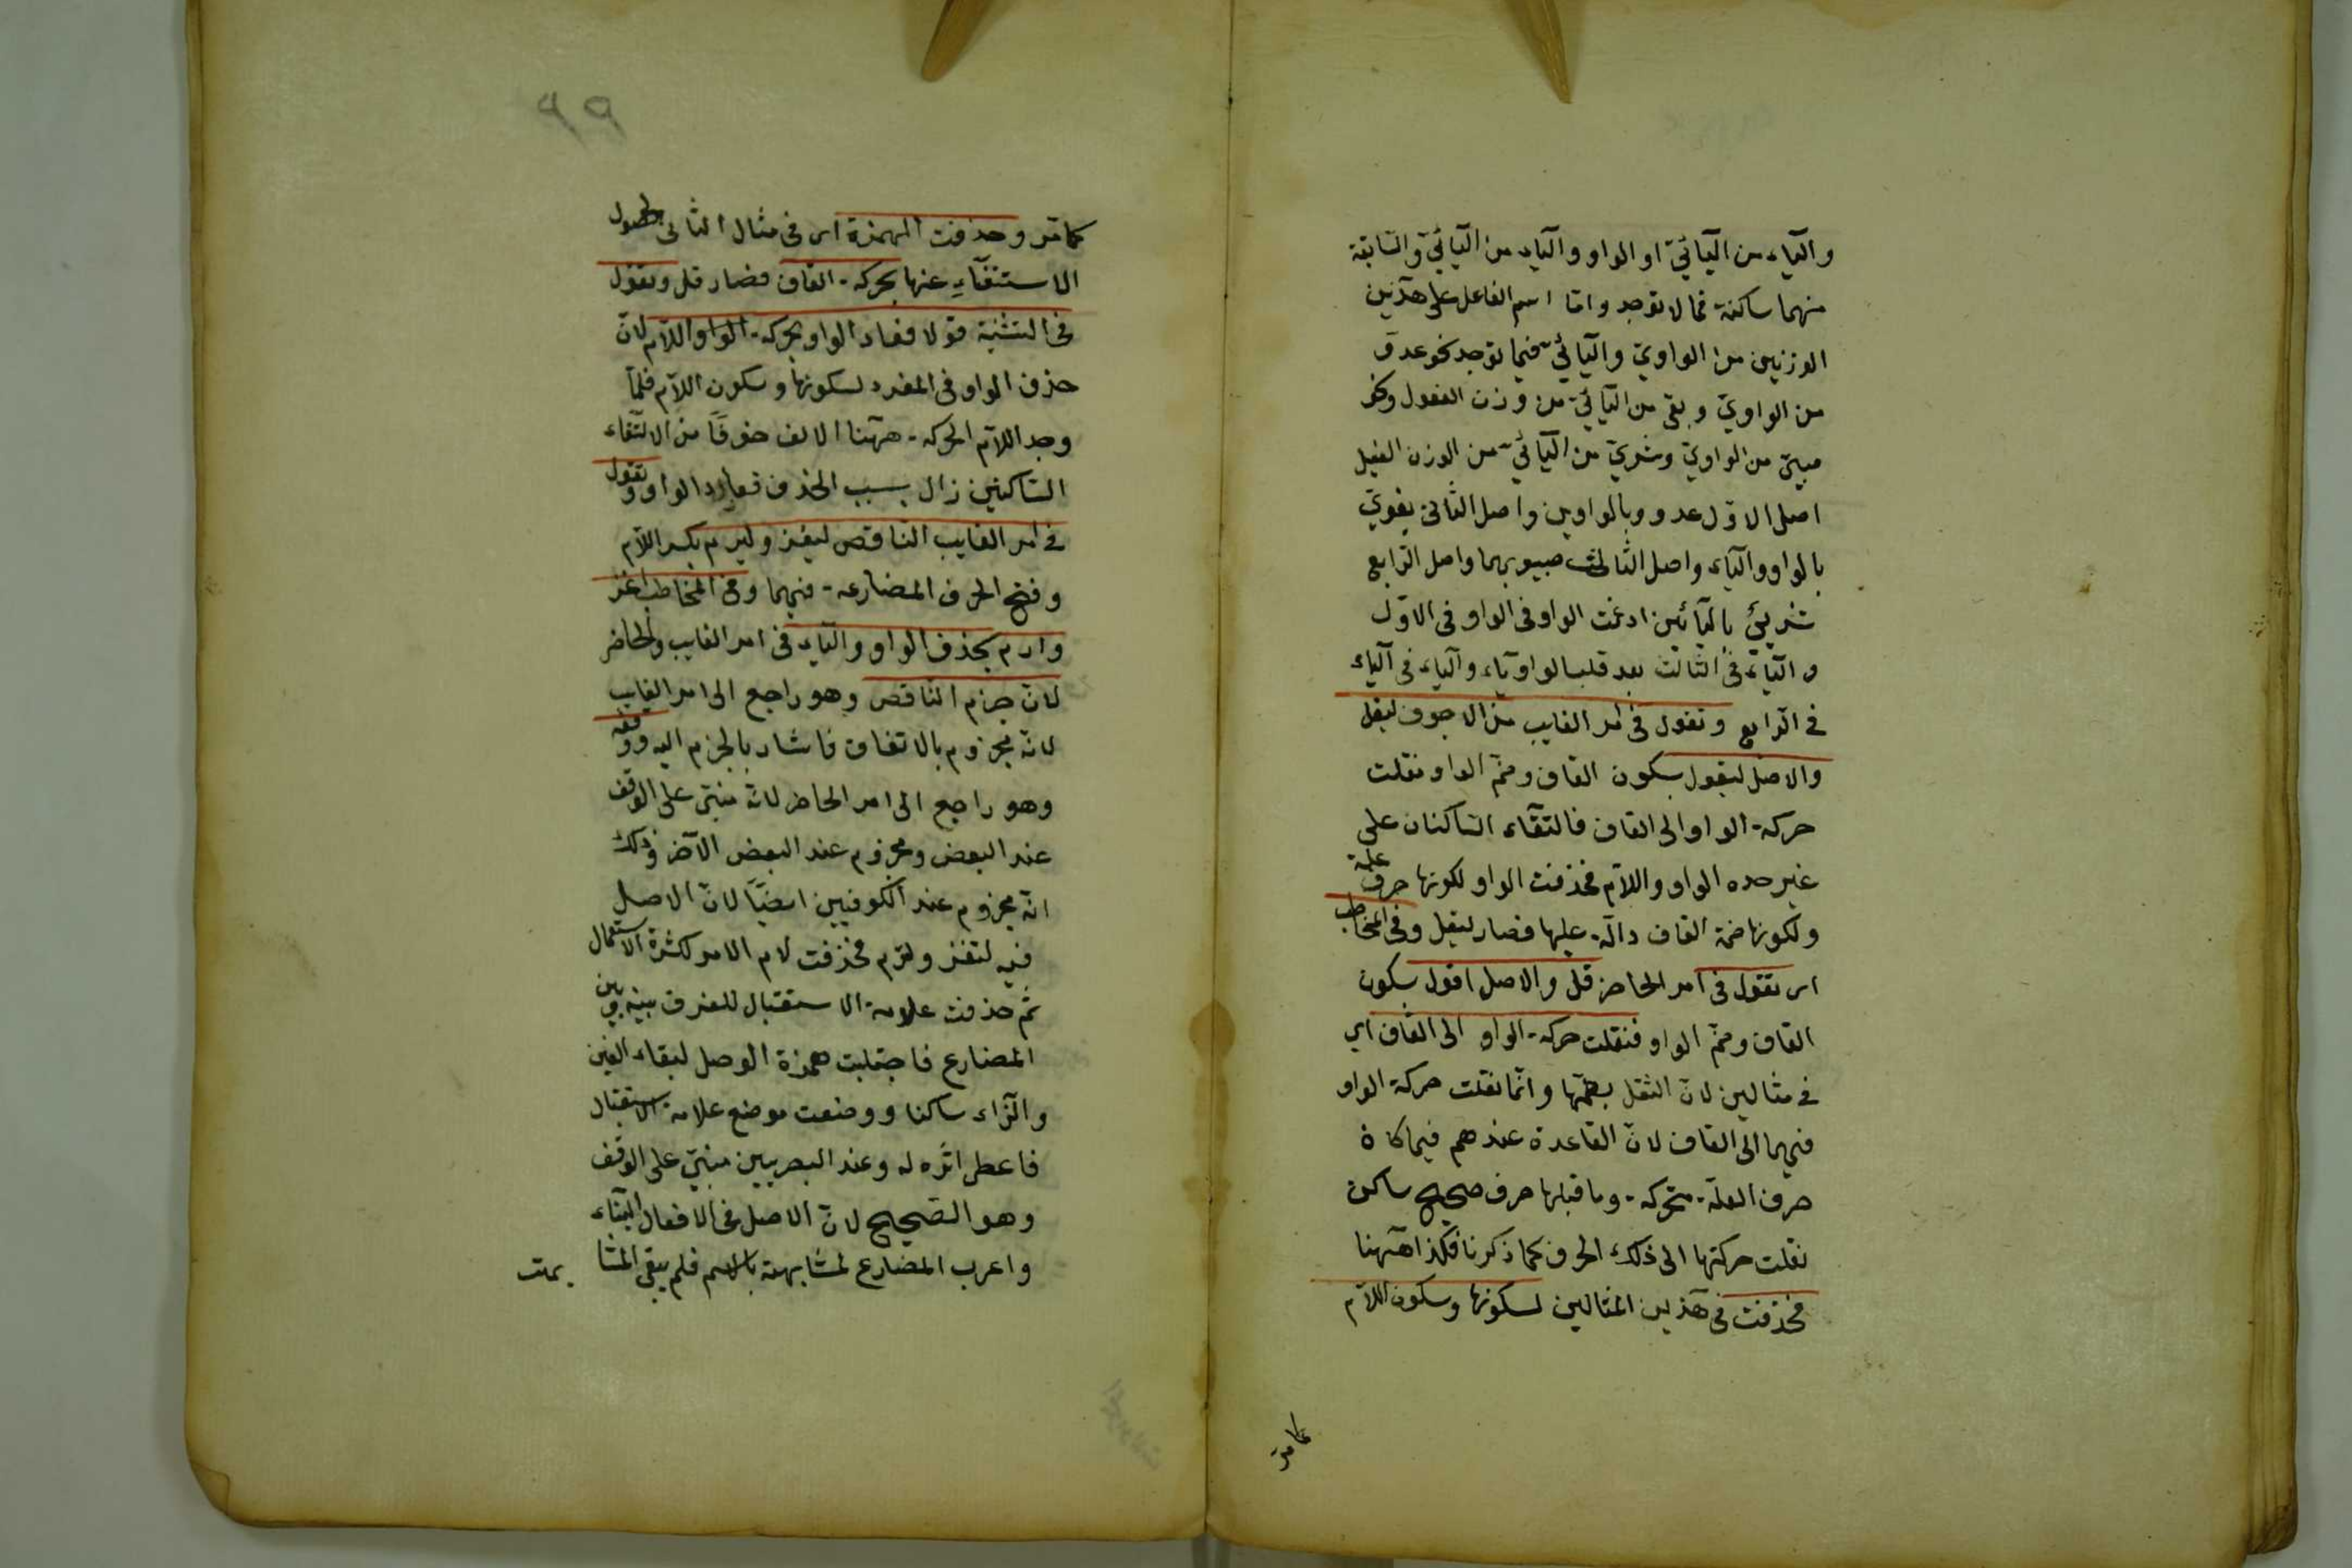 والياء من اليائي او الواو والياء من اليائي والسابقة
منهما ساكنة فما لا توجد واما اسم الفاعل على هذين
الوزنين من الواوي واليائي فيما توجد نحو عدوّ
من الواوي وبغي من اليائي من وزن الفعول ونحو
صبيّ من الواوي وشريّ من اليائي من الوزن الفعيل
اصل الاوّل عدوو بالواوين واصل الثاني بغوي
بالواو والياء واصل الثالث صبيو بهما واصل الرابع
شريي باليائين ادغمت الواو في الواو في الاوّل
والياء في الثالث بعد قلب الواو ياء والياء في الياء
في الرابع وتقول في امر الغايب من الاجوف ليقل
والاصل ليقول بسكون القاف وضمّ الواو نقلت
حركة الواو الى القاف فالتقاء الساكنان على
غير حده الواو واللام فحذفت الواو لكونها حرف علة
ولكونها ضمة القاف دالّة عليها فصار ليقل وفي المخاطب
اى تقول في امر الحاضر قل والاصل اقول بسكون
القاف وضمّ الواو فنقلت حركة الواو الى القاف اي
في مثالين لانّ الثقل بضمّها وانّما نقلت حركة الواو
فيهما الى القاف لانّ القاعدة عندهم فيما كان
حرف العلّة متحركة وما قبلها حرف صحيح ساكن
نقلت حركتها الى ذلك الحرف كما ذكرنا فكذا ههنا
فحذفت في هذين المثالين لسكونها وسكون اللام
كما مرّ
٩٩
كما مرّ وحذفت الهمزة اى في مثال الثاني لحصول
الاستغناء عنها بحركة القاف فصار قل وتقول
في التثنية قولا فعاد الواو بحركة الواو اللام لانّ
حذف الواو في المفرد لسكونها وسكون اللام فلمّا
وجد اللام الحركة ههنا الالف خوفًا من الالتقاء
الساكنين زال بسبب الحذف الواو وتقول
في امر الغايب الناقص ليغز وليرم بكسر اللام
وفتح الحرف المضارعة فيهما وفي المخاطب اغز
وارم بحذف الواو والياء في امر الغايب والحاضر
لانّ جزم الناقص وهو راجع الى امر الغايب
لانّه مجزوم بالاتفاق فاشار بالجزم اليه ووقفه
وهو راجع الى امر الحاضر لانّه مبنيّ على الوقف
عند البعض ومجزوم عند البعض الآخر وذلك
انّه مجزوم عند الكوفيين ايضًا لانّ الاصل
فيه لتغز ولترم فحذفت لام الامر لكثرة الاستعمال
ثمّ حذفت علامة الاستقبال للفرق بينه وبين
المضارع فاجتلبت همزة الوصل لبقاء الغين
والرّاء ساكنا ووضعت موضع علامة الاستقبال
فاعطى اثره له وعند البصريين مبنيّ على الوقف
وهو الصّحيح لانّ الاصل في الافعال البناء
واعرب المضارع لمشابهة بالاسم فلم يبقى المشا
بهت